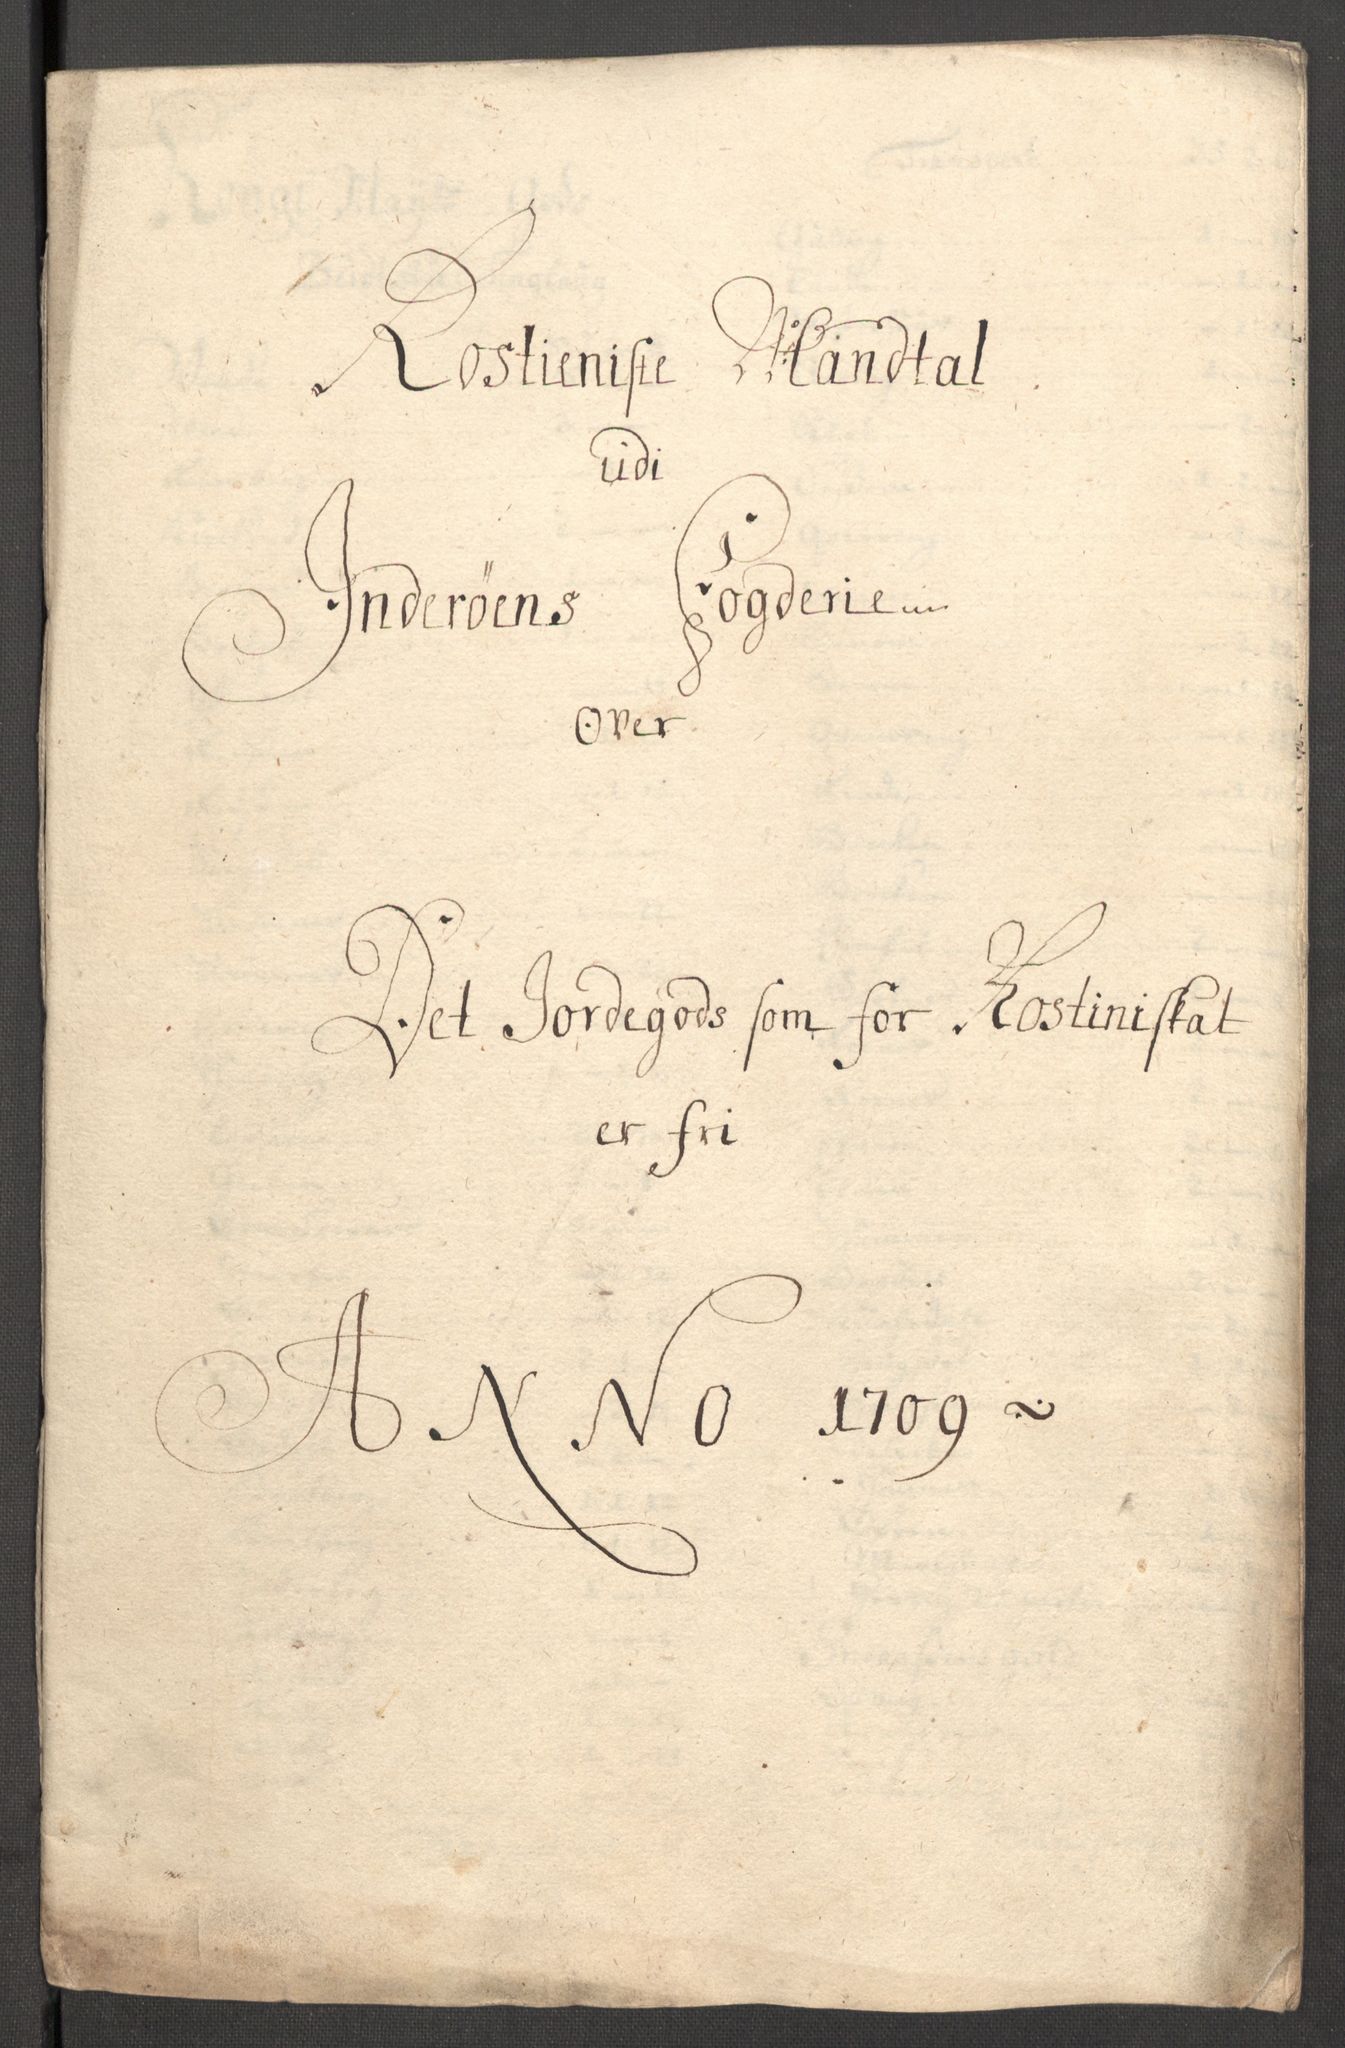 Rostieniste Mandtal
udi
Inderöens Fogderie
Over
Det Jordegods som for Rostiniskat
er fri
ANNO 1709